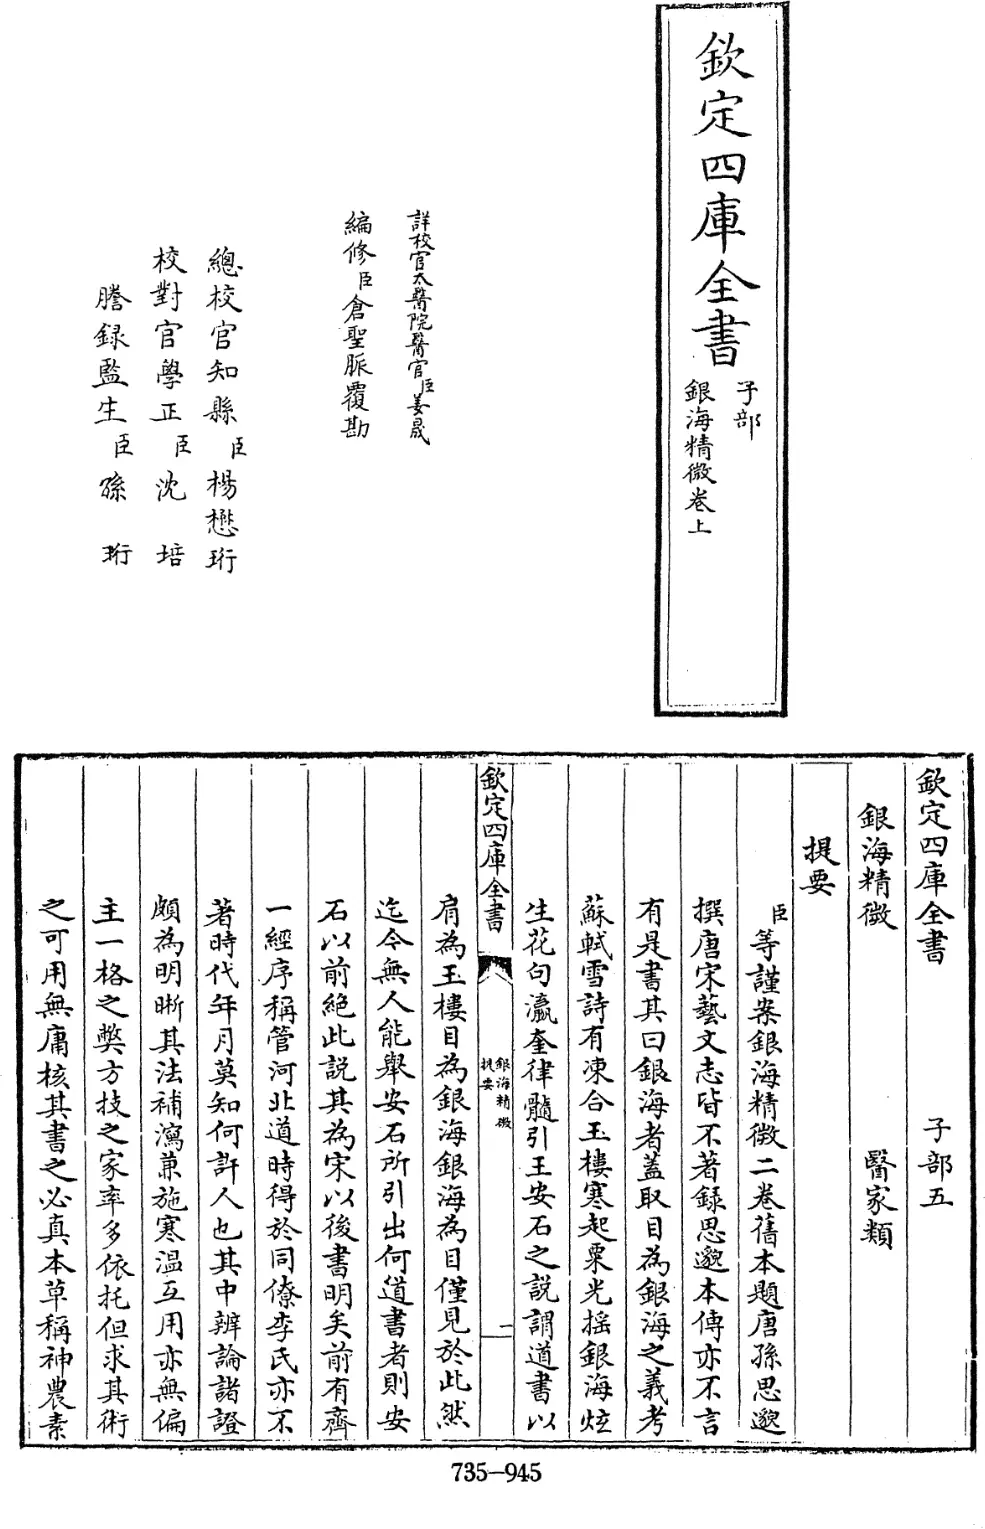 欽定四庫全書
子部
銀海精微卷上
詳校官太醫院醫官臣姜晟
編修臣倉聖脈覆勘
總校官知縣臣楊懋珩
校對官學正臣沈培
謄録監生臣孫珩
欽定四庫全書 子部五
銀海精微 醫家類
提要
臣等謹案銀海精微二卷舊本題唐孫思邈
撰唐宋藝文志皆不著録思邈本傳亦不言
有是書其曰銀海者蓋取目為銀海之義考
蘇軾雪詩有凍合玉樓寒起粟光摇銀海炫
生花句瀛奎律髓引王安石之説謂道書以
欽定四庫全書
銀海精微
提要
一
肩為玉樓目為銀海銀海為目僅見於此然
迄今無人能舉安石所引出何道書者則安
石以前絶此説其為宋以後書明矣前有齊
一經序稱管河北道時得於同僚李氏亦不
著時代年月莫知何許人也其中辨論諸證
頗為明晰其法補瀉兼施寒温互用亦無偏
主一格之弊方技之家率多依托但求其術
之可用無庸核其書之必真本草稱神農素
735-945